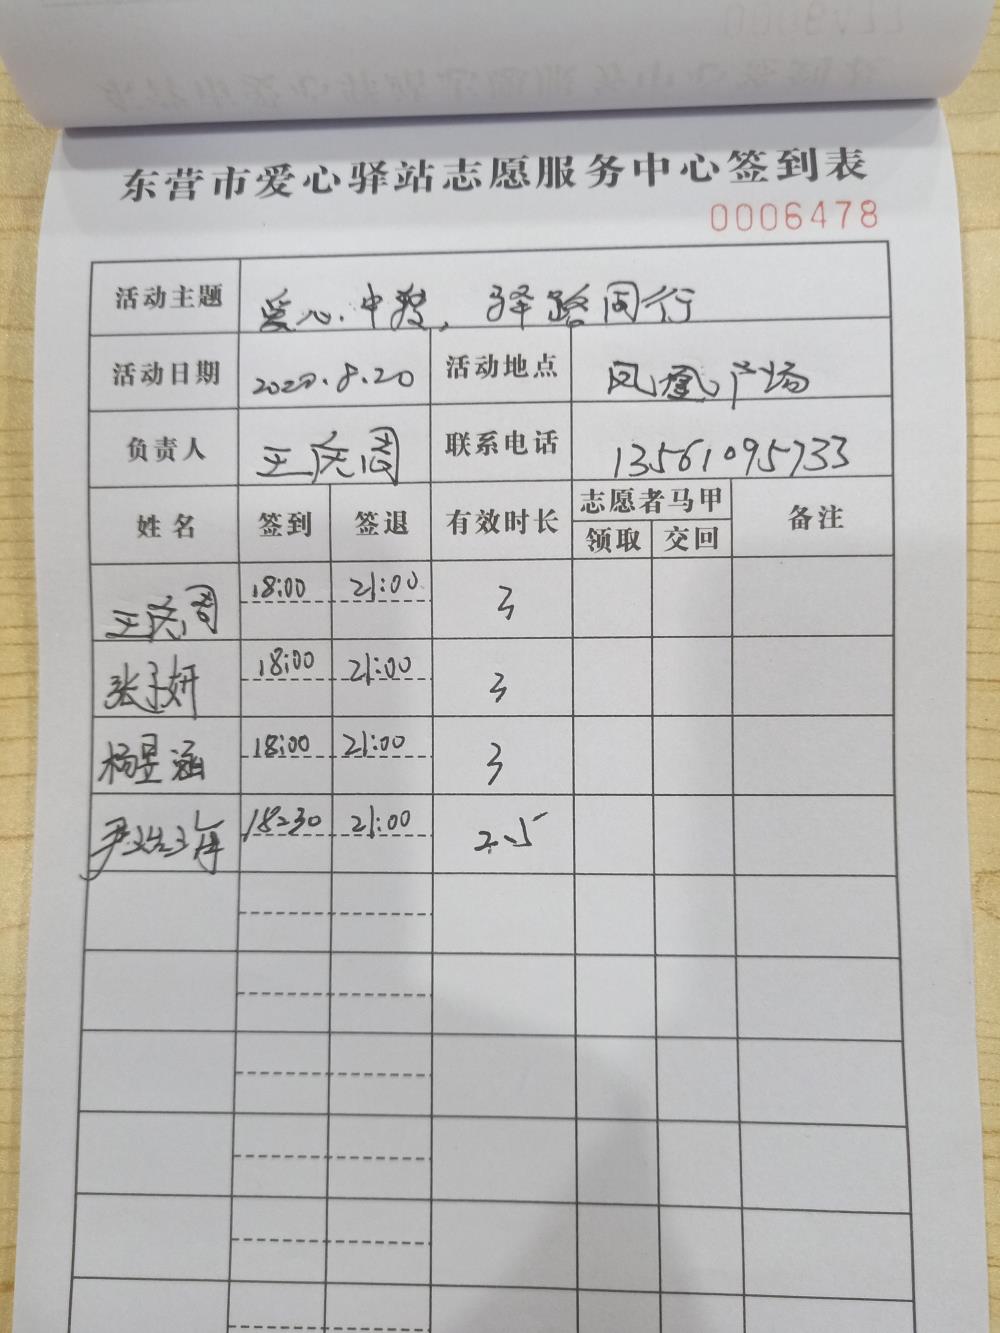 东营市爱心驿站志愿服务中心签到表
0006478
活动主题 爱心中转，驿路同行
活动日期 2020.8.20 活动地点 凤凰广场
负责人 王庆国 联系电话 13561095733
姓名 签到 签退 有效时长 志愿者马甲 备注
领取 交回
王庆国 18:00 21:00 3
张子妍 18:00 21:00 3
杨昱涵 18:00 21:00 3
尹 18:30 21:00 2.5